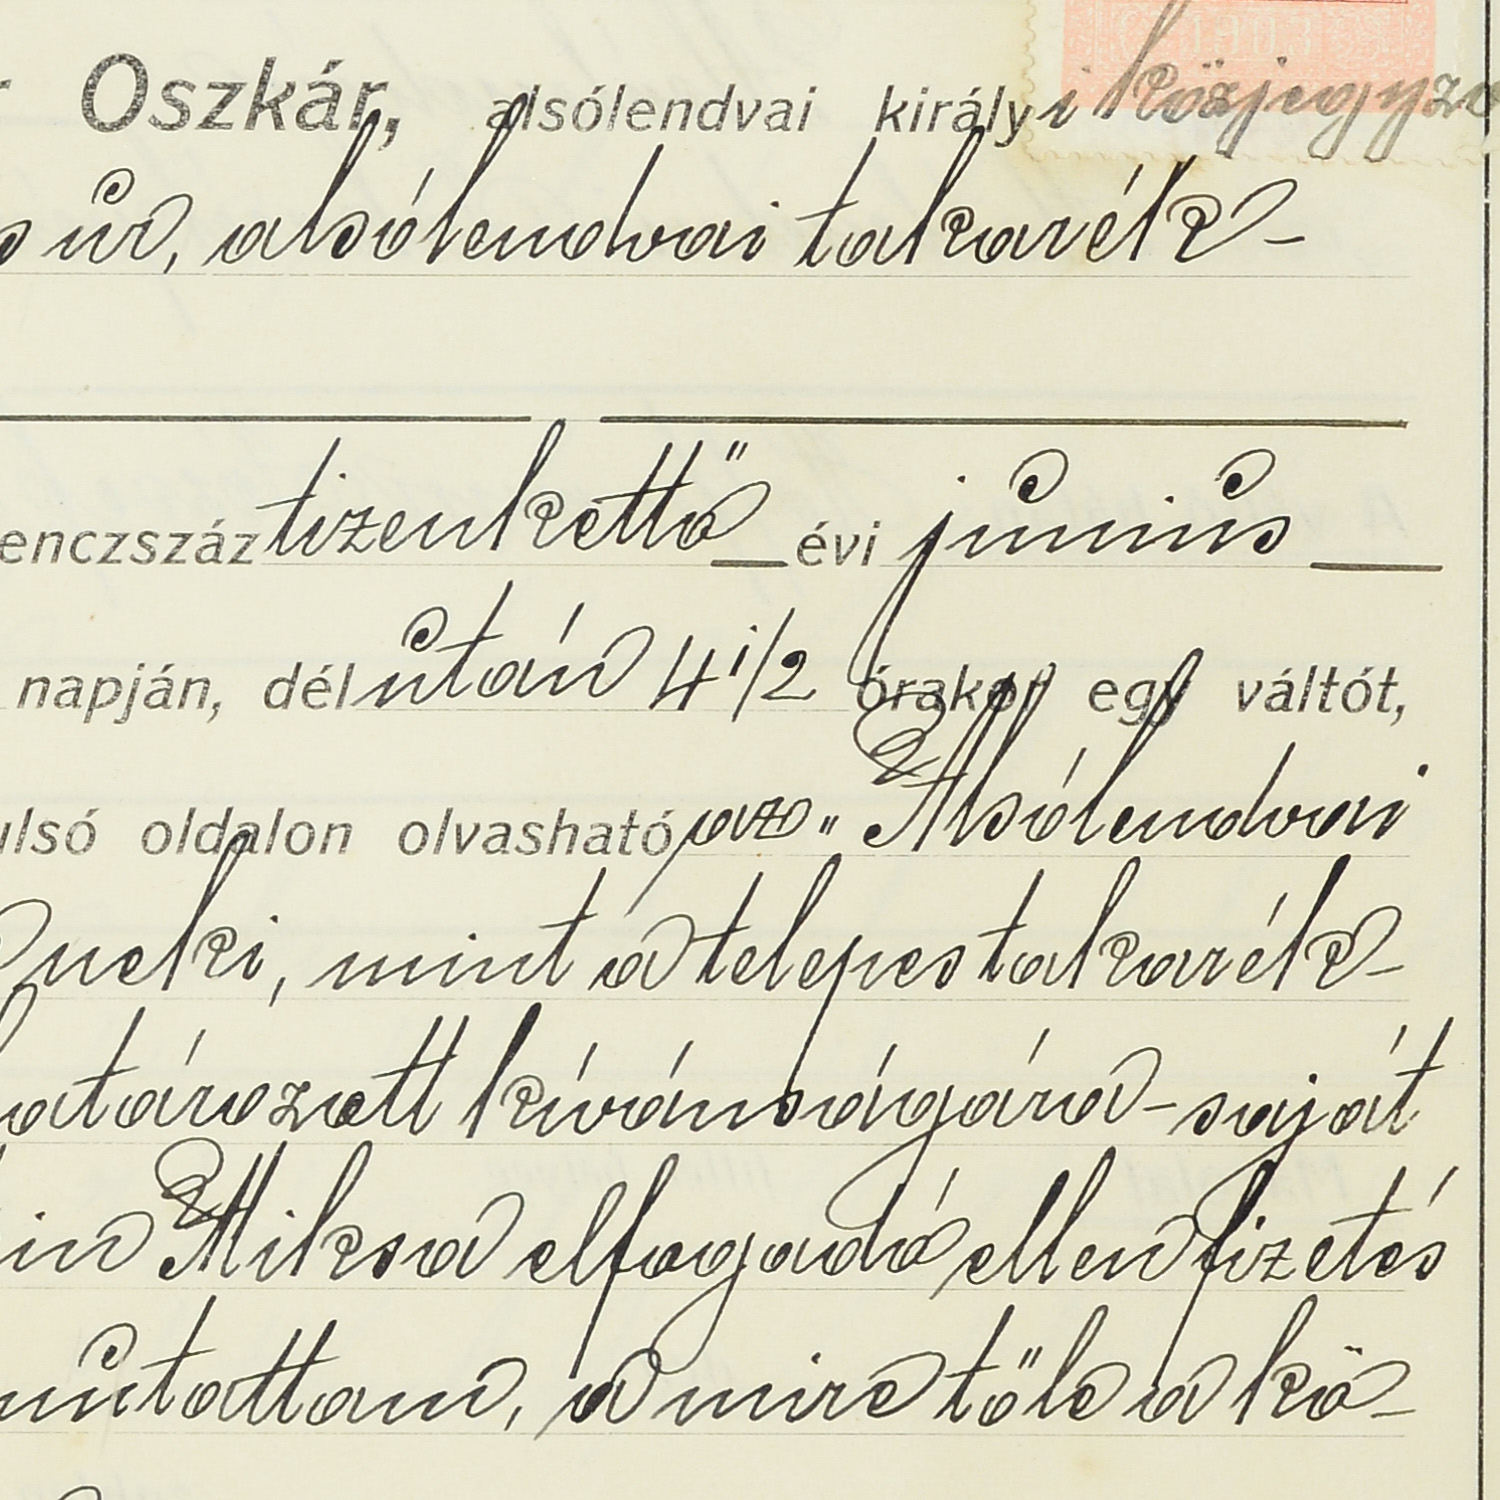 1903
Oszkár, alsólendvai királyi közjegyző
s úr, alsólendvai takarék-
enczszáz tizenkettő évi június
napján, délután 4 1/2 órakor egy váltót,
ulsó oldalon olvasható az „Alsólendvai
ucki, mint a telepes takarék-
atározott kívánságára - saját
in Miksa elfogadó ellen fizetés
mutattam, a mire tőle a kö-